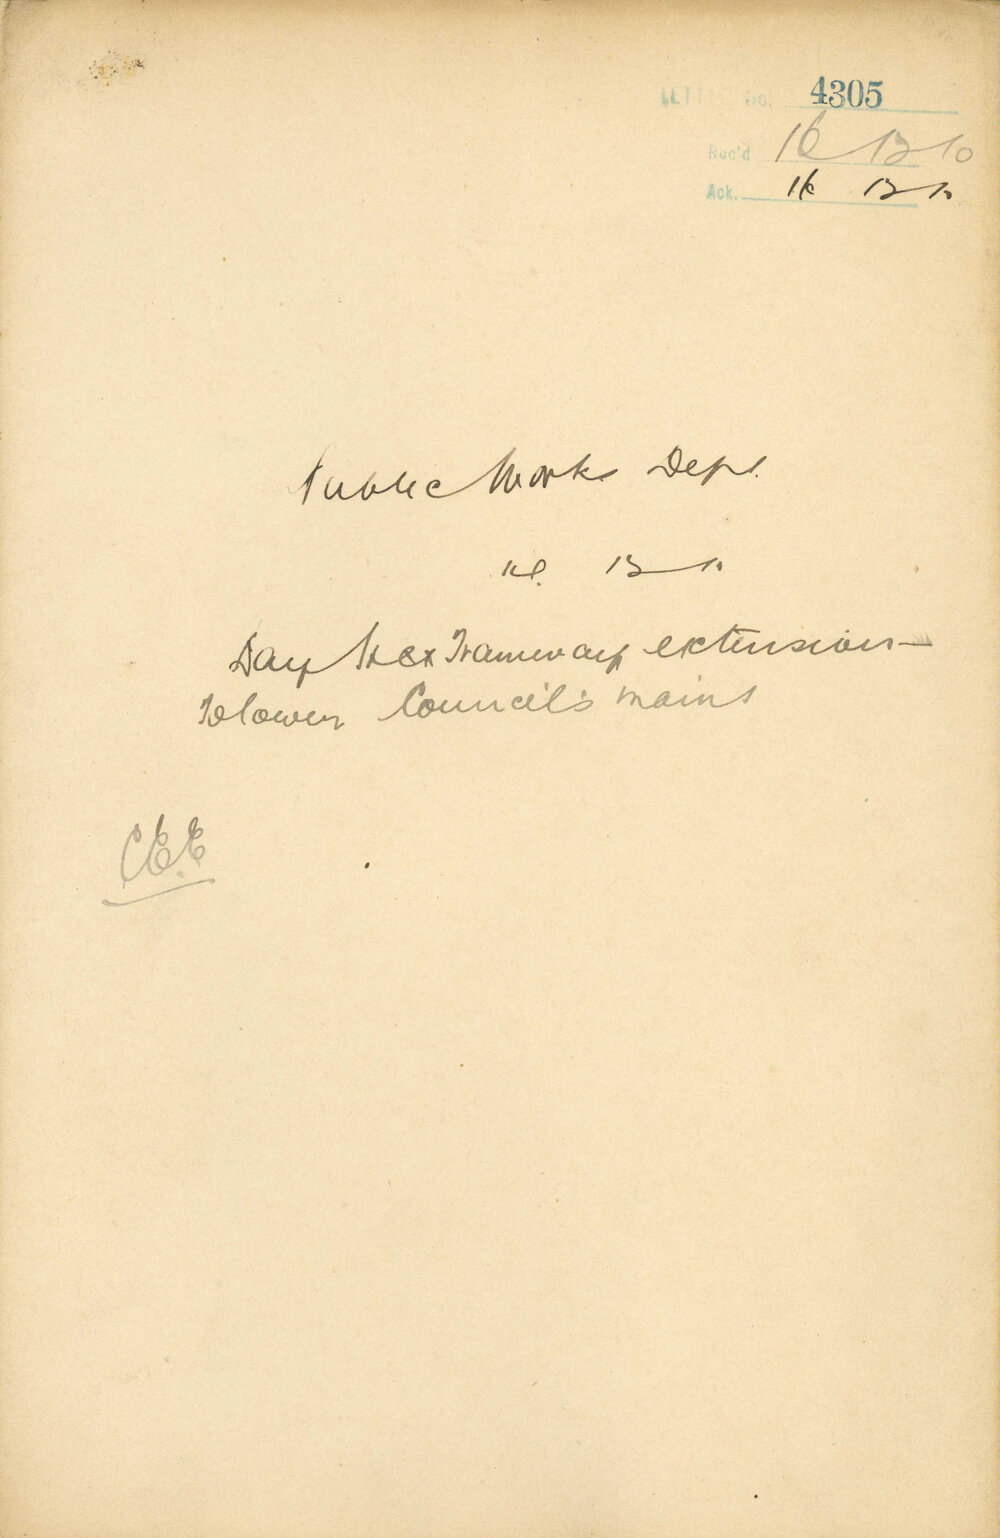 LETTER No. 4305
Rec'd 16 12 10
Ack. 16 12 10
Public Works Dept.
16. 12 10
Day St &c Tramway extension—
To lower Council's mains
C.E.E